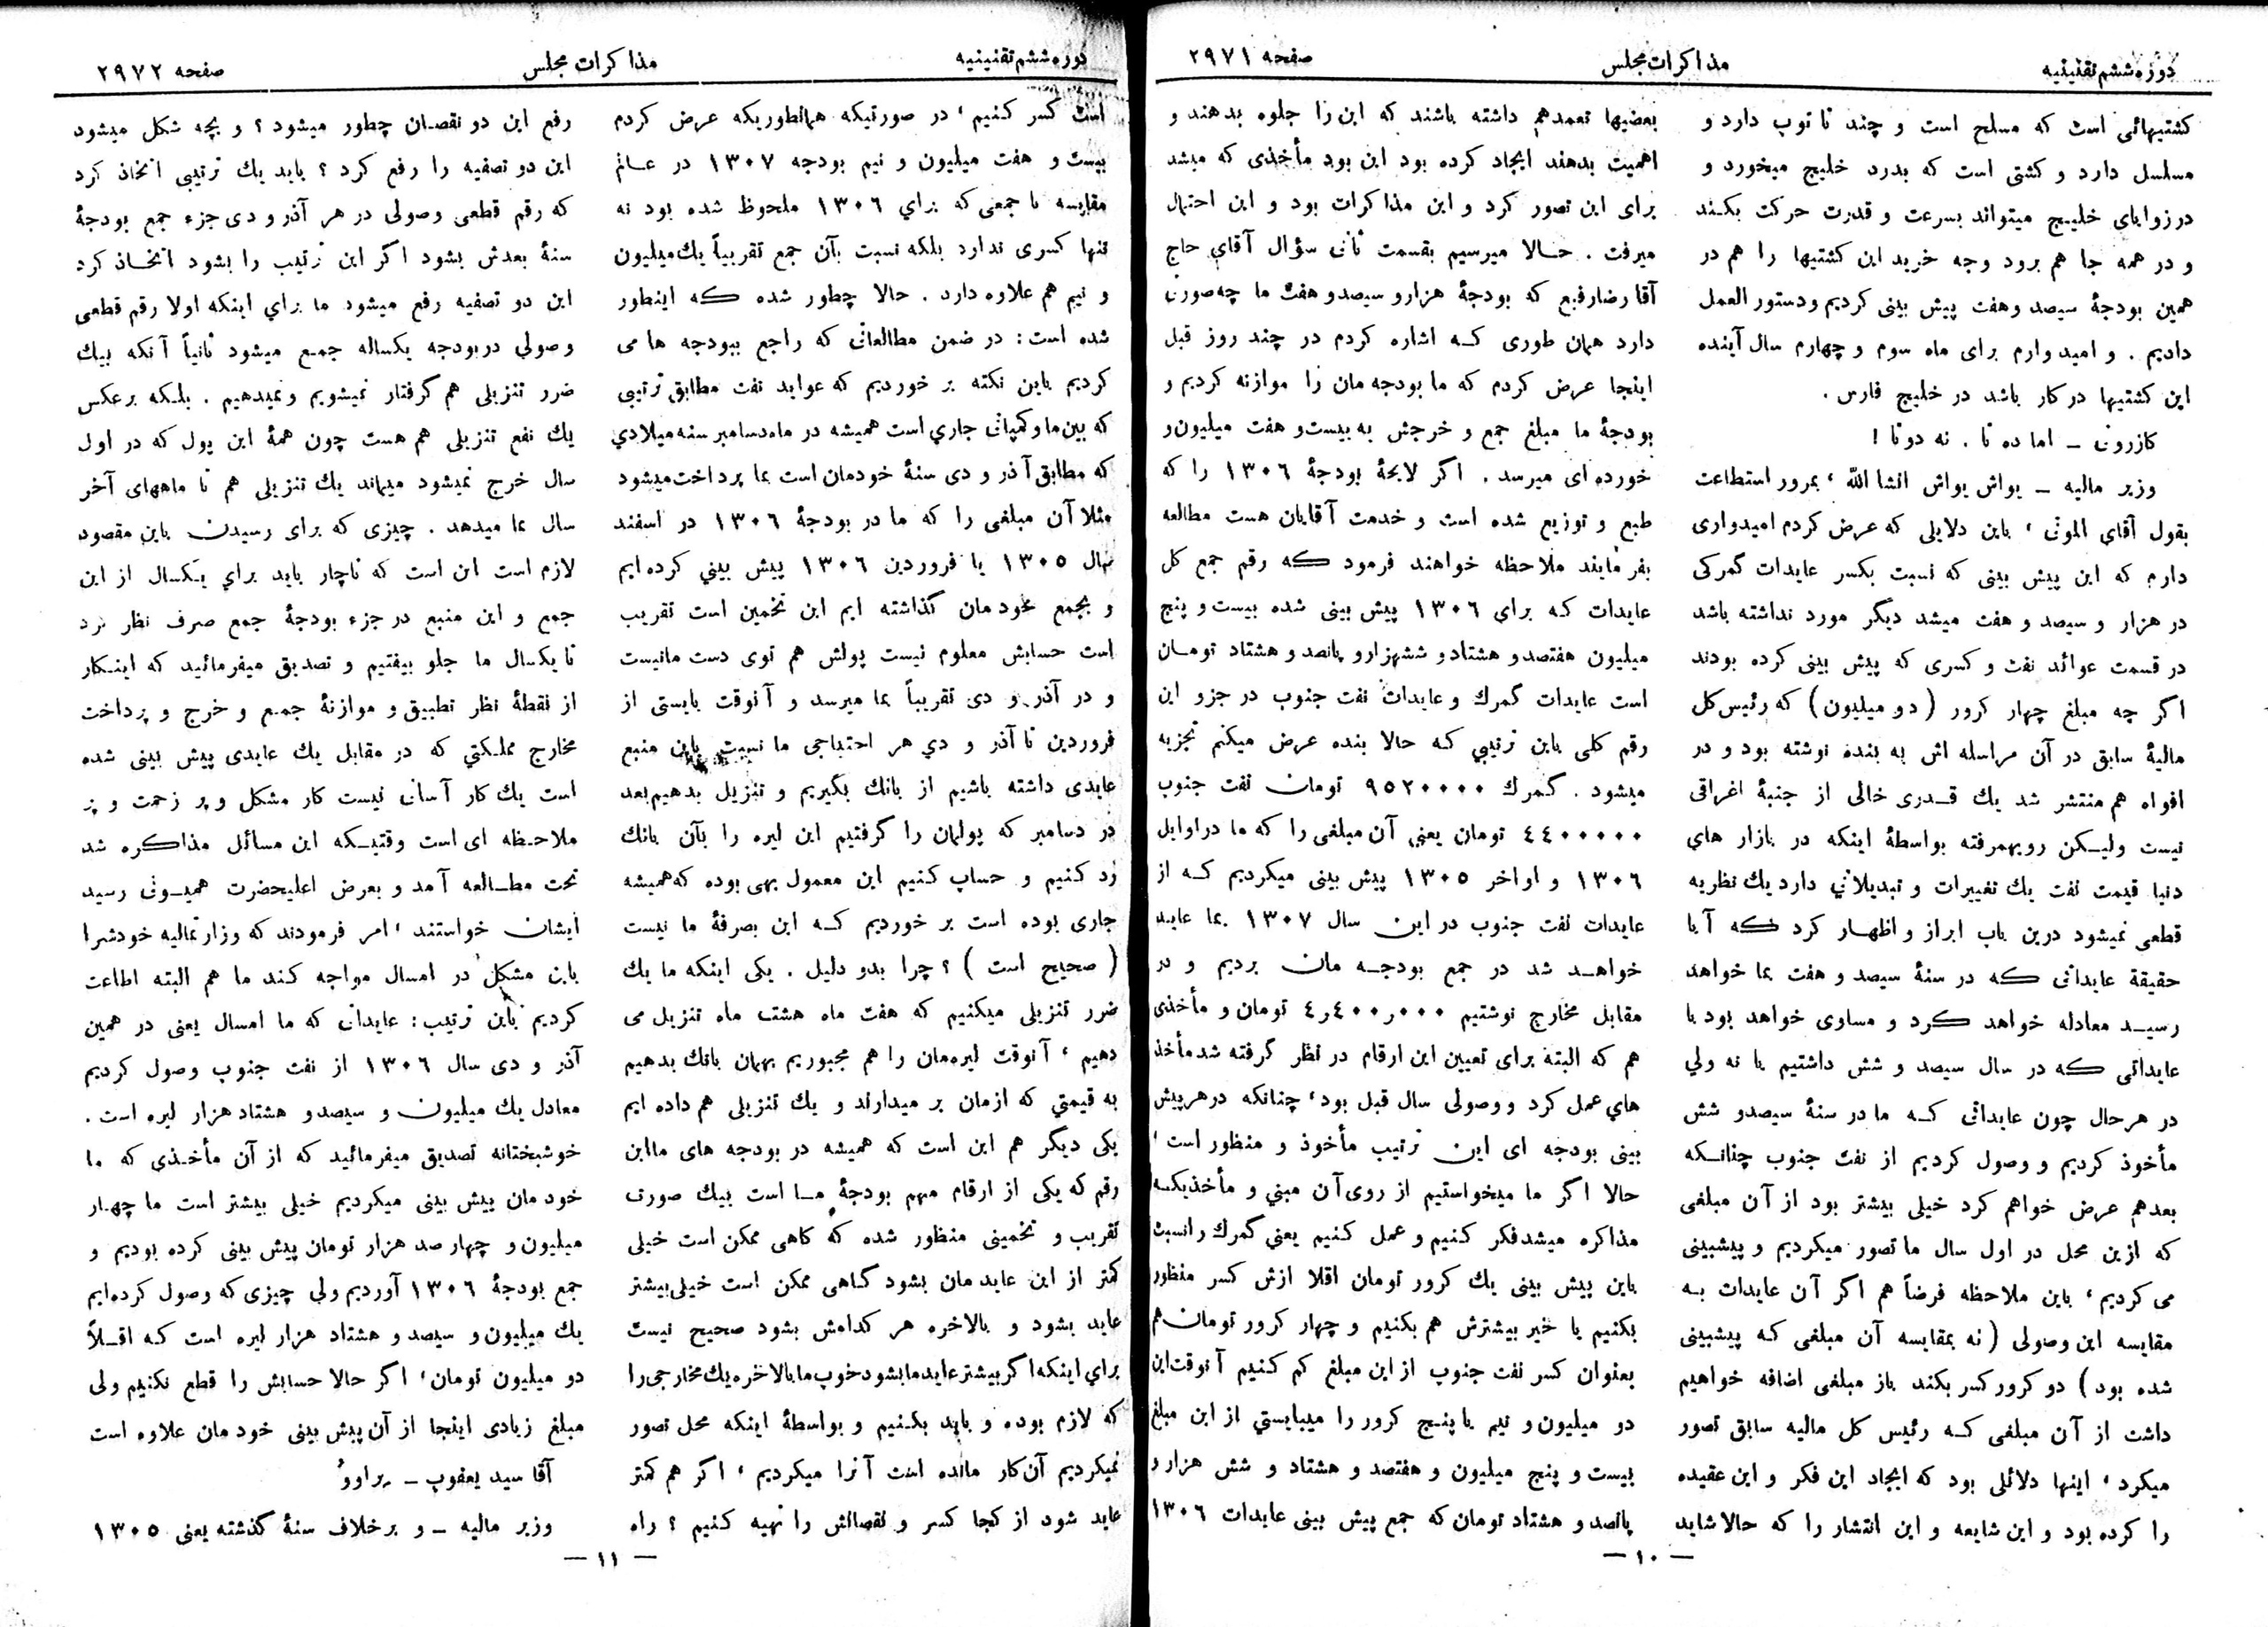 دوره ششم تقنینیه
مذاکرات مجلس
صفحه ۲۹۷۱
کشتیهائی است که مسلح است و چند تا توپ دارد و
مسلسل دارد و کشتی است که بدرد خلیج میخورد و
در زوایای خلیج میتواند بسرعت و قدرت حرکت بکند
و در همه جا هم برود وجه خرید این کشتیها را هم در
همین بودجهٔ سیصد وهفت پیش بینی کردیم ودستور العمل
دادیم . و امید وارم برای ماه سوم و چهارم سال آینده
این کشتیها در کار باشد در خلیج فارس .
کازرونی ـ اما ده تا . نه دو تا !
وزیر مالیه ـ یواش یواش انشا الله ، بمرور استطاعت
بقول آقای الموتی ، باین دلایلی که عرض کردم امیدواری
دارم که این پیش بینی که نسبت بکسر عایدات گمرکی
در هزار و سیصد و هفت میشد دیگر مورد نداشته باشد
در قسمت عوائد نفت و کسری که پیش بینی کرده بودند
اگر چه مبلغ چهار کرور ( دو میلیون ) که رئیس کل
مالیهٔ سابق در آن مراسله اش به بنده نوشته بود و در
افواه هم منتشر شد یك قدری خالی از جنبهٔ اغراقی
نیست ولیکن رویهمرفته بواسطهٔ اینکه در بازار های
دنیا قیمت نفت یك تغییرات و تبدیلاتی دارد یك نظریه
قطعی نمیشود درین باب ابراز و اظهار کرد که آیا
حقیقة عایداتی که در سنهٔ سیصد و هفت بما خواهد
رسید معادله خواهد کرد و مساوی خواهد بود با
عایداتی که در سال سیصد و شش داشتیم یا نه ولی
در هرحال چون عایداتی که ما در سنهٔ سیصدو شش
مأخوذ کردیم و وصول کردیم از نفت جنوب چنانکه
بعدهم عرض خواهم کرد خیلی بیشتر بود از آن مبلغی
که ازین محل در اول سال ما تصور میکردیم و پیشبینی
می کردیم ، باین ملاحظه فرضاً هم اگر آن عایدات به
مقایسه این وصولی ( نه بمقایسه آن مبلغی که پیشبینی
شده بود ) دو کرور کسر بکند باز مبلغی اضافه خواهیم
داشت از آن مبلغی که رئیس کل مالیه سابق تصور
میکرد ، اینها دلائلی بود که ایجاد این فکر و این عقیده
را کرده بود و این شایعه و این انتشار را که حالا شاید
بعضیها تعمدهم داشته باشند که این را جلوه بدهند و
اهمیت بدهند ایجاد کرده بود این بود مأخذی که میشد
برای این تصور کرد و این مذاکرات بود و این احتمال
میرفت . حالا میرسیم بقسمت ثانی سؤال آقای حاج
آقا رضا رفیع که بودجهٔ هزارو سیصدو هفت ما چه صورتی
دارد همان طوری که اشاره کردم در چند روز قبل
اینجا عرض کردم که ما بودجه مان را موازنه کردیم و
بودجهٔ ما مبلغ جمع و خرجش به بیست و هفت میلیون و
خورده ای میرسد . اگر لایحهٔ بودجهٔ ۱۳۰۶ را که
طبع و توزیع شده است و خدمت آقایان هست مطالعه
بفرمایند ملاحظه خواهند فرمود که رقم جمع کل
عایدات که برای ۱۳۰۶ پیش بینی شده بیست و پنج
میلیون هفتصد و هشتاد و ششهزار و پانصد و هشتاد تومان
است عایدات گمرك و عایدات نفت جنوب در جزو این
رقم کلی باین ترتیبی که حالا بنده عرض میکنم تجزیه
میشود . گمرك ۹۵۲۰۰۰۰ تومان نفت جنوب
۴۴۰۰۰۰۰ تومان یعنی آن مبلغی را که ما در اوایل
۱۳۰۶ و اواخر ۱۳۰۵ پیش بینی میکردیم که از
عایدات نفت جنوب در این سال ۱۳۰۷ بما عاید
خواهد شد در جمع بودجه مان بردیم و در
مقابل مخارج نوشتیم ۴٫۴۰۰٫۰۰۰ تومان و مأخذی
هم که البته برای تعیین این ارقام در نظر گرفته شد مأخذ
های عمل کرد و وصولی سال قبل بود ، چنانکه در هر پیش
بینی بودجه ای این ترتیب مأخوذ و منظور است ،
حالا اگر ما میخواستیم از روی آن مبنی و مأخذیکه
مذاکره میشد فکر کنیم و عمل کنیم یعنی گمرك را نسبت
باین پیش بینی یك کرور تومان اقلا ازش کسر منظور
بکنیم یا خیر بیشترش هم بکنیم و چهار کرور تومان هم
بعنوان کسر نفت جنوب از این مبلغ کم کنیم آنوقت این
دو میلیون و نیم یا پنج کرور را میبایستی از این مبلغ
بیست و پنج میلیون و هفتصد و هشتاد و شش هزار و
پانصد و هشتاد تومان که جمع پیش بینی عایدات ۱۳۰۶
— ۱۰ —
دوره ششم تقنینیه
مذاکرات مجلس
صفحه ۲۹۷۲
است کسر کنیم ، در صورتیکه همانطوریکه عرض کردم
بیست و هفت میلیون و نیم بودجه ۱۳۰۷ در عالم
مقایسه با جمعی که برای ۱۳۰۶ ملحوظ شده بود نه
تنها کسری ندارد بلکه نسبت بآن جمع تقریباً یك میلیون
و نیم هم علاوه دارد . حالا چطور شده که اینطور
شده است : در ضمن مطالعاتی که راجع ببودجه ها می
کردیم باین نکته بر خوردیم که عواید نفت مطابق ترتیبی
که بین ما و کمپانی جاری است همیشه در ماه دسامبر سنه میلادی
که مطابق آذر و دی سنهٔ خودمان است بما پرداخت میشود
مثلا آن مبلغی را که ما در بودجهٔ ۱۳۰۶ در اسفند
سال ۱۳۰۵ یا فروردین ۱۳۰۶ پیش بینی کرده ایم
و بجمع خودمان گذاشته ایم این تخمین است تقریب
است حسابش معلوم نیست پولش هم توی دست مانیست
و در آذر و دی تقریباً بما میرسد و آنوقت بایستی از
فروردین تا آذر و دی هر احتیاجی ما نسبت باین منبع
عایدی داشته باشیم از بانك بگیریم و تنزیل بدهیم بعد
در دسامبر که پولمان را گرفتیم این لیره را بآن بانك
رد کنیم و حساب کنیم این معمول بهی بوده که همیشه
جاری بوده است بر خوردیم که این بصرفهٔ ما نیست
( صحیح است ) ؟ چرا بدو دلیل . یکی اینکه ما یك
ضرر تنزیلی میکنیم که هفت ماه هشت ماه تنزیل می
دهیم ، آنوقت لیرهمان را هم مجبوریم بهمان بانك بدهیم
به قیمتی که ازمان بر میدارند و یك تنزیلی هم داده ایم
یکی دیگر هم این است که همیشه در بودجه های ما این
رقم که یکی از ارقام مهم بودجهٔ ما است بیك صورت
تقریب و تخمینی منظور شده که گاهی ممکن است خیلی
کمتر از این عایدمان بشود گاهی ممکن است خیلی بیشتر
عاید بشود و بالاخره هر کدامش بشود صحیح نیست
برای اینکه اگر بیشتر عاید ما بشود خوب ما بالاخره یك مخارجی را
که لازم بوده و باید بکنیم و بواسطهٔ اینکه محل تصور
نمیکردیم آن کار مانده است آنرا میکردیم ، اگر هم کمتر
عاید شود از کجا کسر و نقصانش را تهیه کنیم ؟ راه
رفع این دو نقصان چطور میشود ؟ و بچه شکل میشود
این دو تصفیه را رفع کرد ؟ باید یك ترتیبی اتخاذ کرد
که رقم قطعی وصولی در هر آذر و دی جزء جمع بودجهٔ
سنهٔ بعدش بشود اگر این ترتیب را بشود اتخاذ کرد
این دو تصفیه رفع میشود ما برای اینکه اولا رقم قطعی
وصولی در بودجه یکساله جمع میشود ثانیاً آنکه بیك
ضرر تنزیلی هم گرفتار نمیشویم و نمیدهیم . بلکه برعکس
یك نفع تنزیلی هم هست چون همهٔ این پول که در اول
سال خرج نمیشود میماند یك تنزیلی هم تا ماههای آخر
سال بما میدهد . چیزی که برای رسیدن باین مقصود
لازم است این است که ناچار باید برای یکسال از این
جمع و این منبع در جزء بودجهٔ جمع صرف نظر کرد
تا یکسال ما جلو بیفتیم و تصدیق میفرمائید که اینکار
از نقطهٔ نظر تطبیق و موازنهٔ جمع و خرج و پرداخت
مخارج مملکتی که در مقابل یك عایدی پیش بینی شده
است یك کار آسانی نیست کار مشکل و پر زحمت و پر
ملاحظه ای است وقتیکه این مسائل مذاکره شد
تحت مطالعه آمد و بعرض اعلیحضرت همیونی رسید
ایشان خواستند ، امر فرمودند که وزارتمالیه خودشرا
باین مشکل در امسال مواجه کند ما هم البته اطاعت
کردیم باین ترتیب : عایداتی که ما امسال یعنی در همین
آذر و دی سال ۱۳۰۶ از نفت جنوب وصول کردیم
معادل یك میلیون و سیصدو هشتاد هزار لیره است .
خوشبختانه تصدیق میفرمائید که از آن مأخذی که ما
خودمان پیش بینی میکردیم خیلی بیشتر است ما چهار
میلیون و چهار صد هزار تومان پیش بینی کرده بودیم و
جمع بودجهٔ ۱۳۰۶ آوردیم ولی چیزی که وصول کرده ایم
یك میلیون و سیصد و هشتاد هزار لیره است که اقلاً
دو میلیون تومان ، اگر حالا حسابش را قطع نکنیم ولی
مبلغ زیادی اینجا از آن پیش بینی خودمان علاوه است
آقا سید یعقوب ـ براوو
وزیر مالیه ـ و برخلاف سنهٔ گذشته یعنی ۱۳۰۵
— ۱۱ —